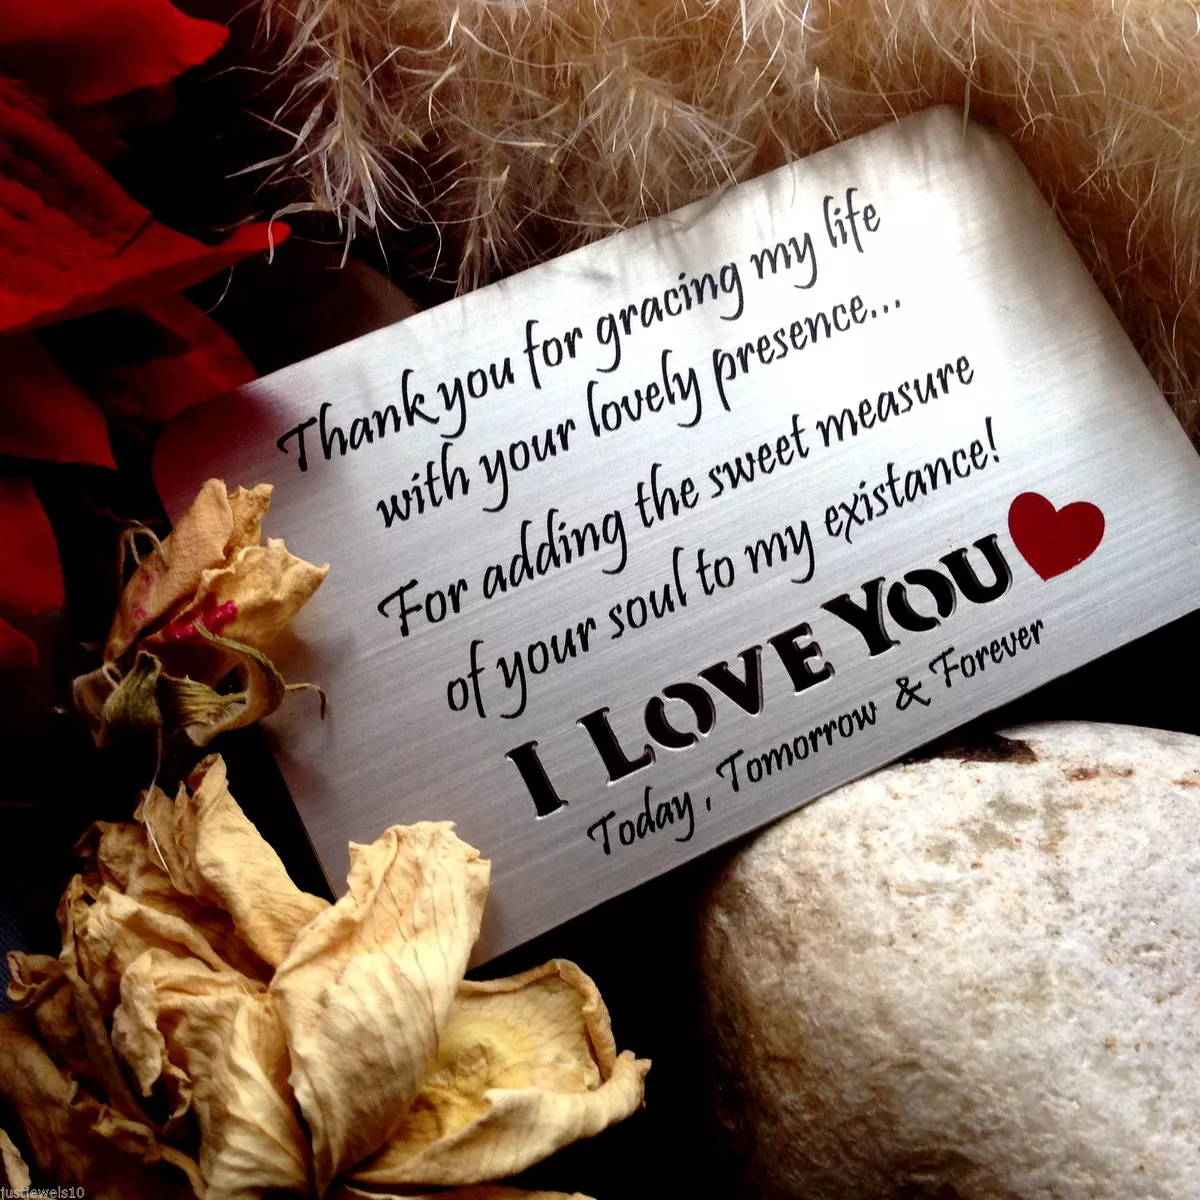 Thank you for gracing my life
with your lovely presence...
For adding the sweet measure
of your soul to my existance!
I LOVE YOU
Today, Tomorrow & Forever
justjewels10